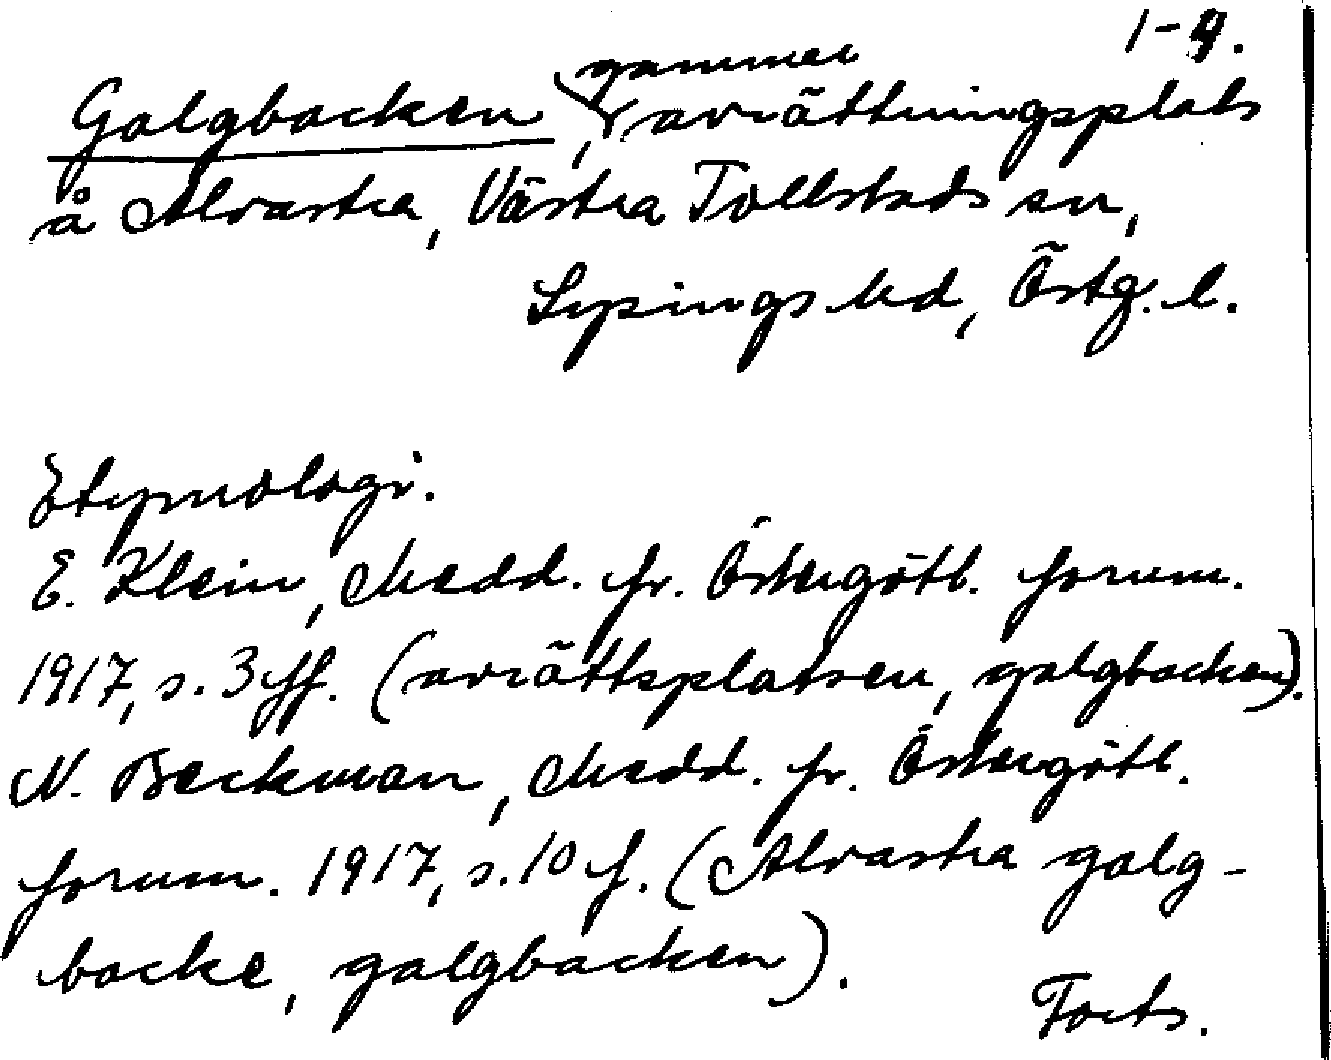 1-9.
Galgbacken, gammal avrättningsplats
å Alvastra, Västra Tollstads sn,
Lysings hd, Östg. l.
Etymologi.
E. Klein, Medd. fr. Östergötl. fornm.
1917, s. 3 ff. (avrättsplatsen, galgbacken).
N. Beckman, Medd. fr. Östergötl.
fornm. 1917, s. 10 f. (Alvastra galg-
backe, galgbacken).
Forts.